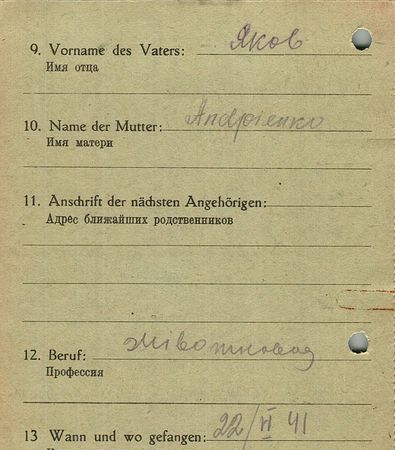 9. Vorname des Vaters: Яков
Имя отца
10. Name der Mutter: Андрієнко
Имя матери
11. Anschrift der nächsten Angehörigen:
Адрес ближайших родственников
12. Beruf: животновод
Профессия
13 Wann und wo gefangen: 22/VI 41